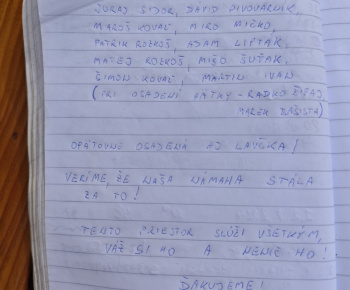 JURAJ ŠIDOR, DÁVID DIVOVÁRNIK,
MAROŠ KOVAĽ, MIRO MIČKO,
PATRIK ROZKOŠ, ADAM LIPTAK,
MATEJ ROZKOŠ, MIŠO ŠUŤAK,
ŠIMON KOVAĽ, MARTIN IVAN
(PRI OSADENÍ LÁTKY - RAZKO
MAREK
OPÄTOVNE OSADENÁ AJ LAVIČKA!
VERÍME, ŽE NAŠA NÁMAHA STÁLA
ZA TO!
TENTO PRIESTOR SLÚŽI VŠETKÝM,
VÁŽ SI HO A NENIČ HO!
ĎAKUJEME!